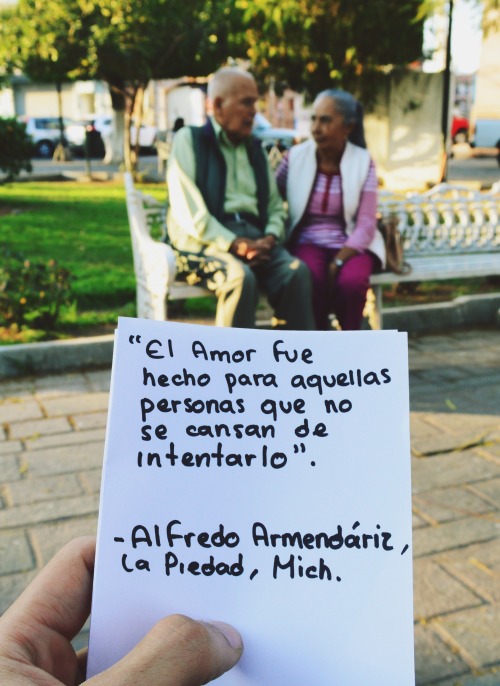 “El Amor fue
hecho para aquellas
personas que no
se cansan de
intentarlo”.
-Alfredo Armendáriz,
La Piedad, Mich.